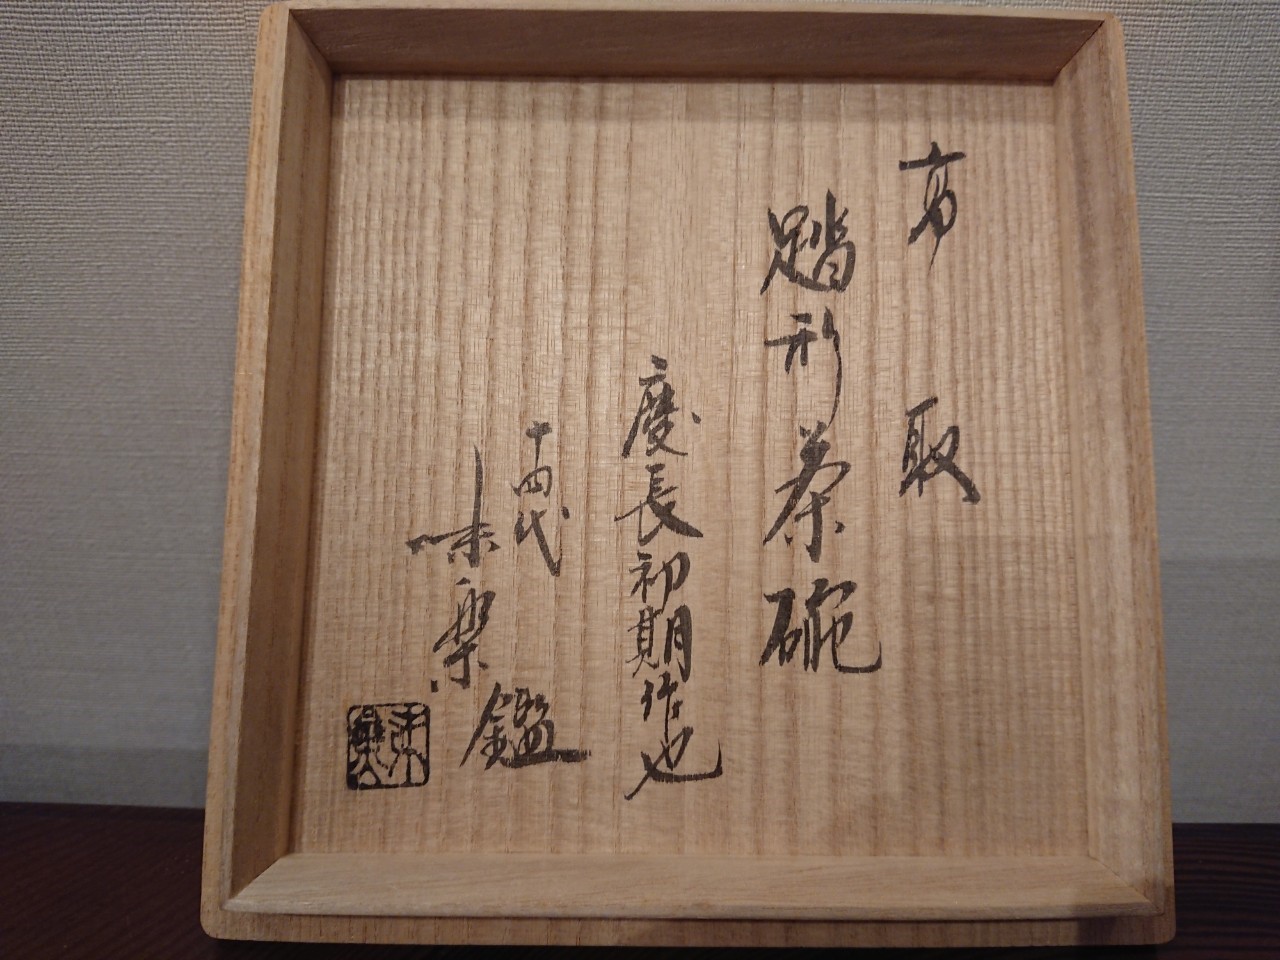 高取
踏形茶碗
慶長初期作也
十四代
味楽
鑑
味楽